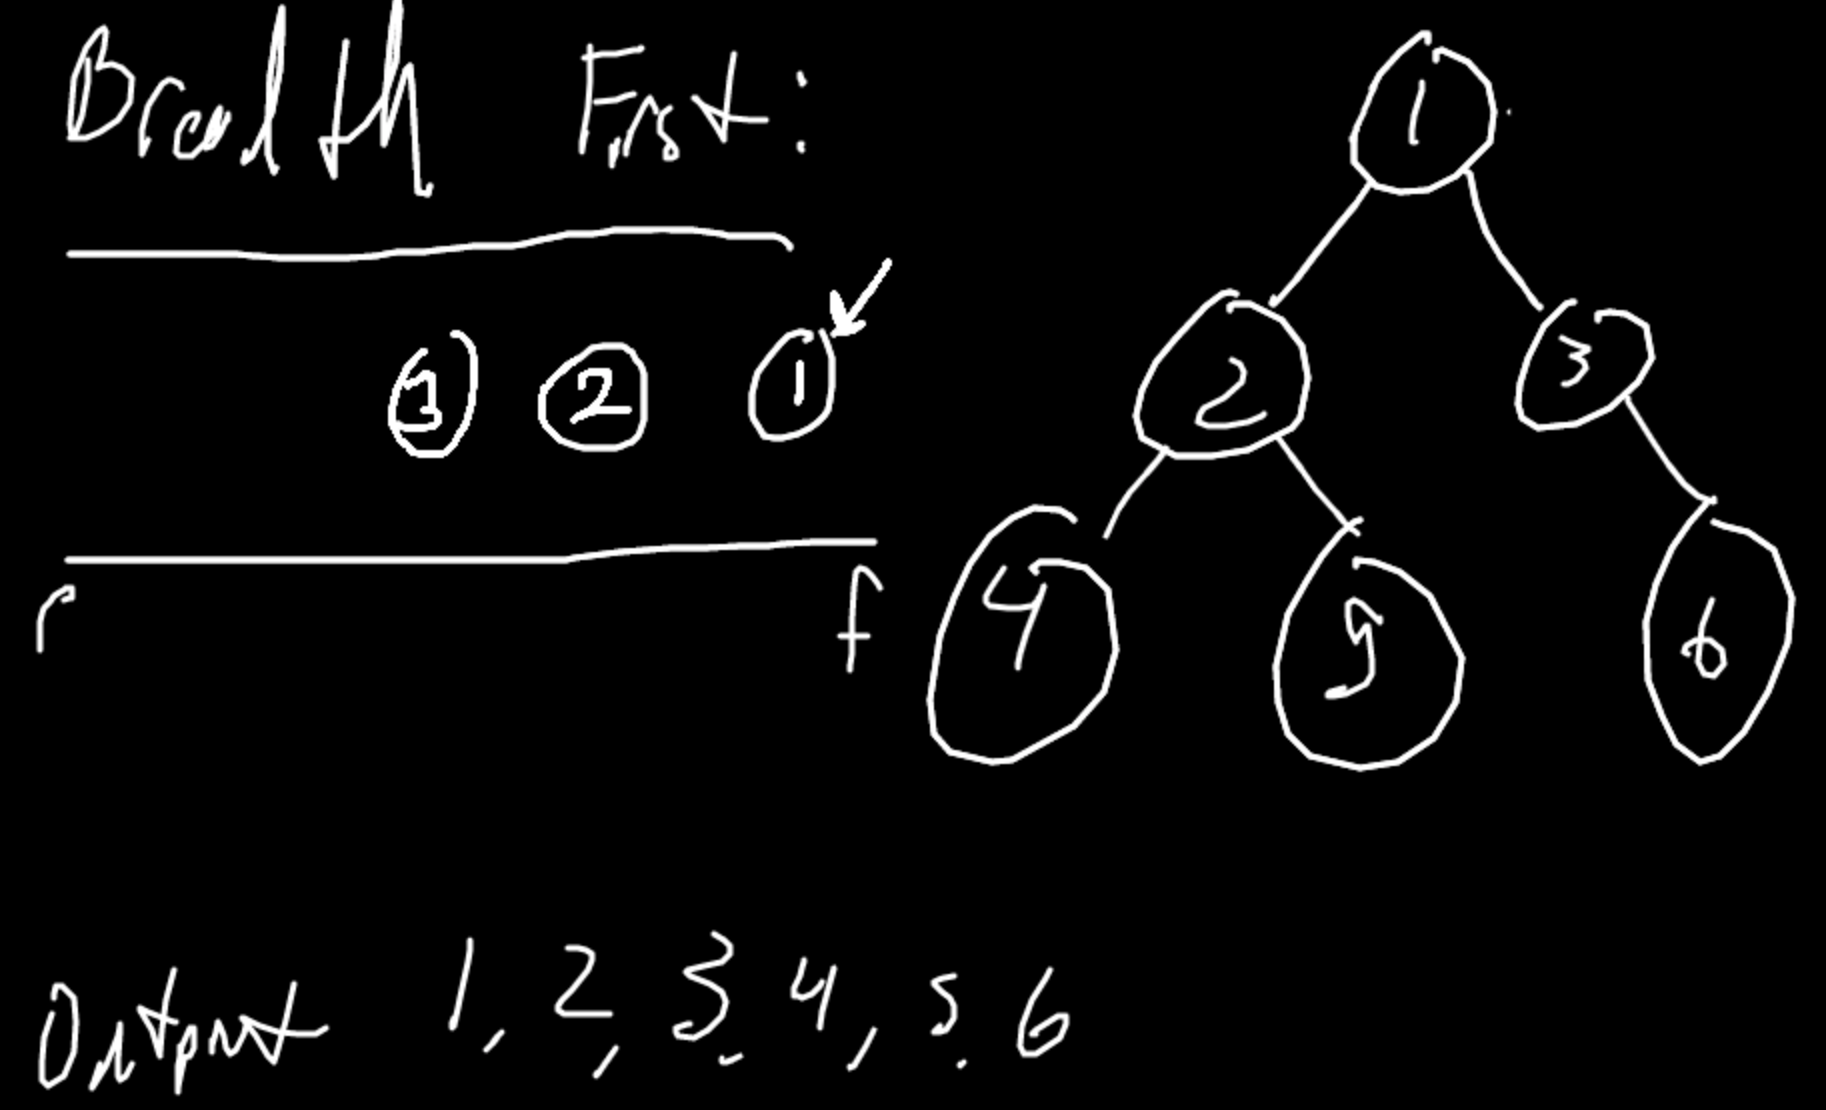 Breadth First:
1
3 2 1
2 3
r f
4 5 6
Output 1, 2, 3, 4, 5, 6